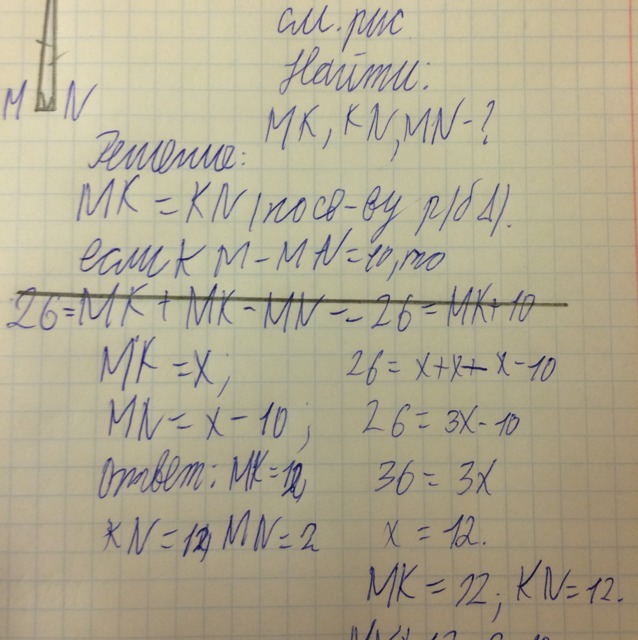 см. рис
Найти:
M N
MK, KN, MN-?
Решение:
MK = KN (по св-ву р/б Δ).
если KM - MN=10, то
26=MK + MK - MN -- 26 = MK+10
MK = x;
26= x+x+x-10
MN= x-10;
26= 3x-10
ответ: MK=12,
36= 3x
KN=12, MN=2
x = 12.
MK = 12; KN=12.